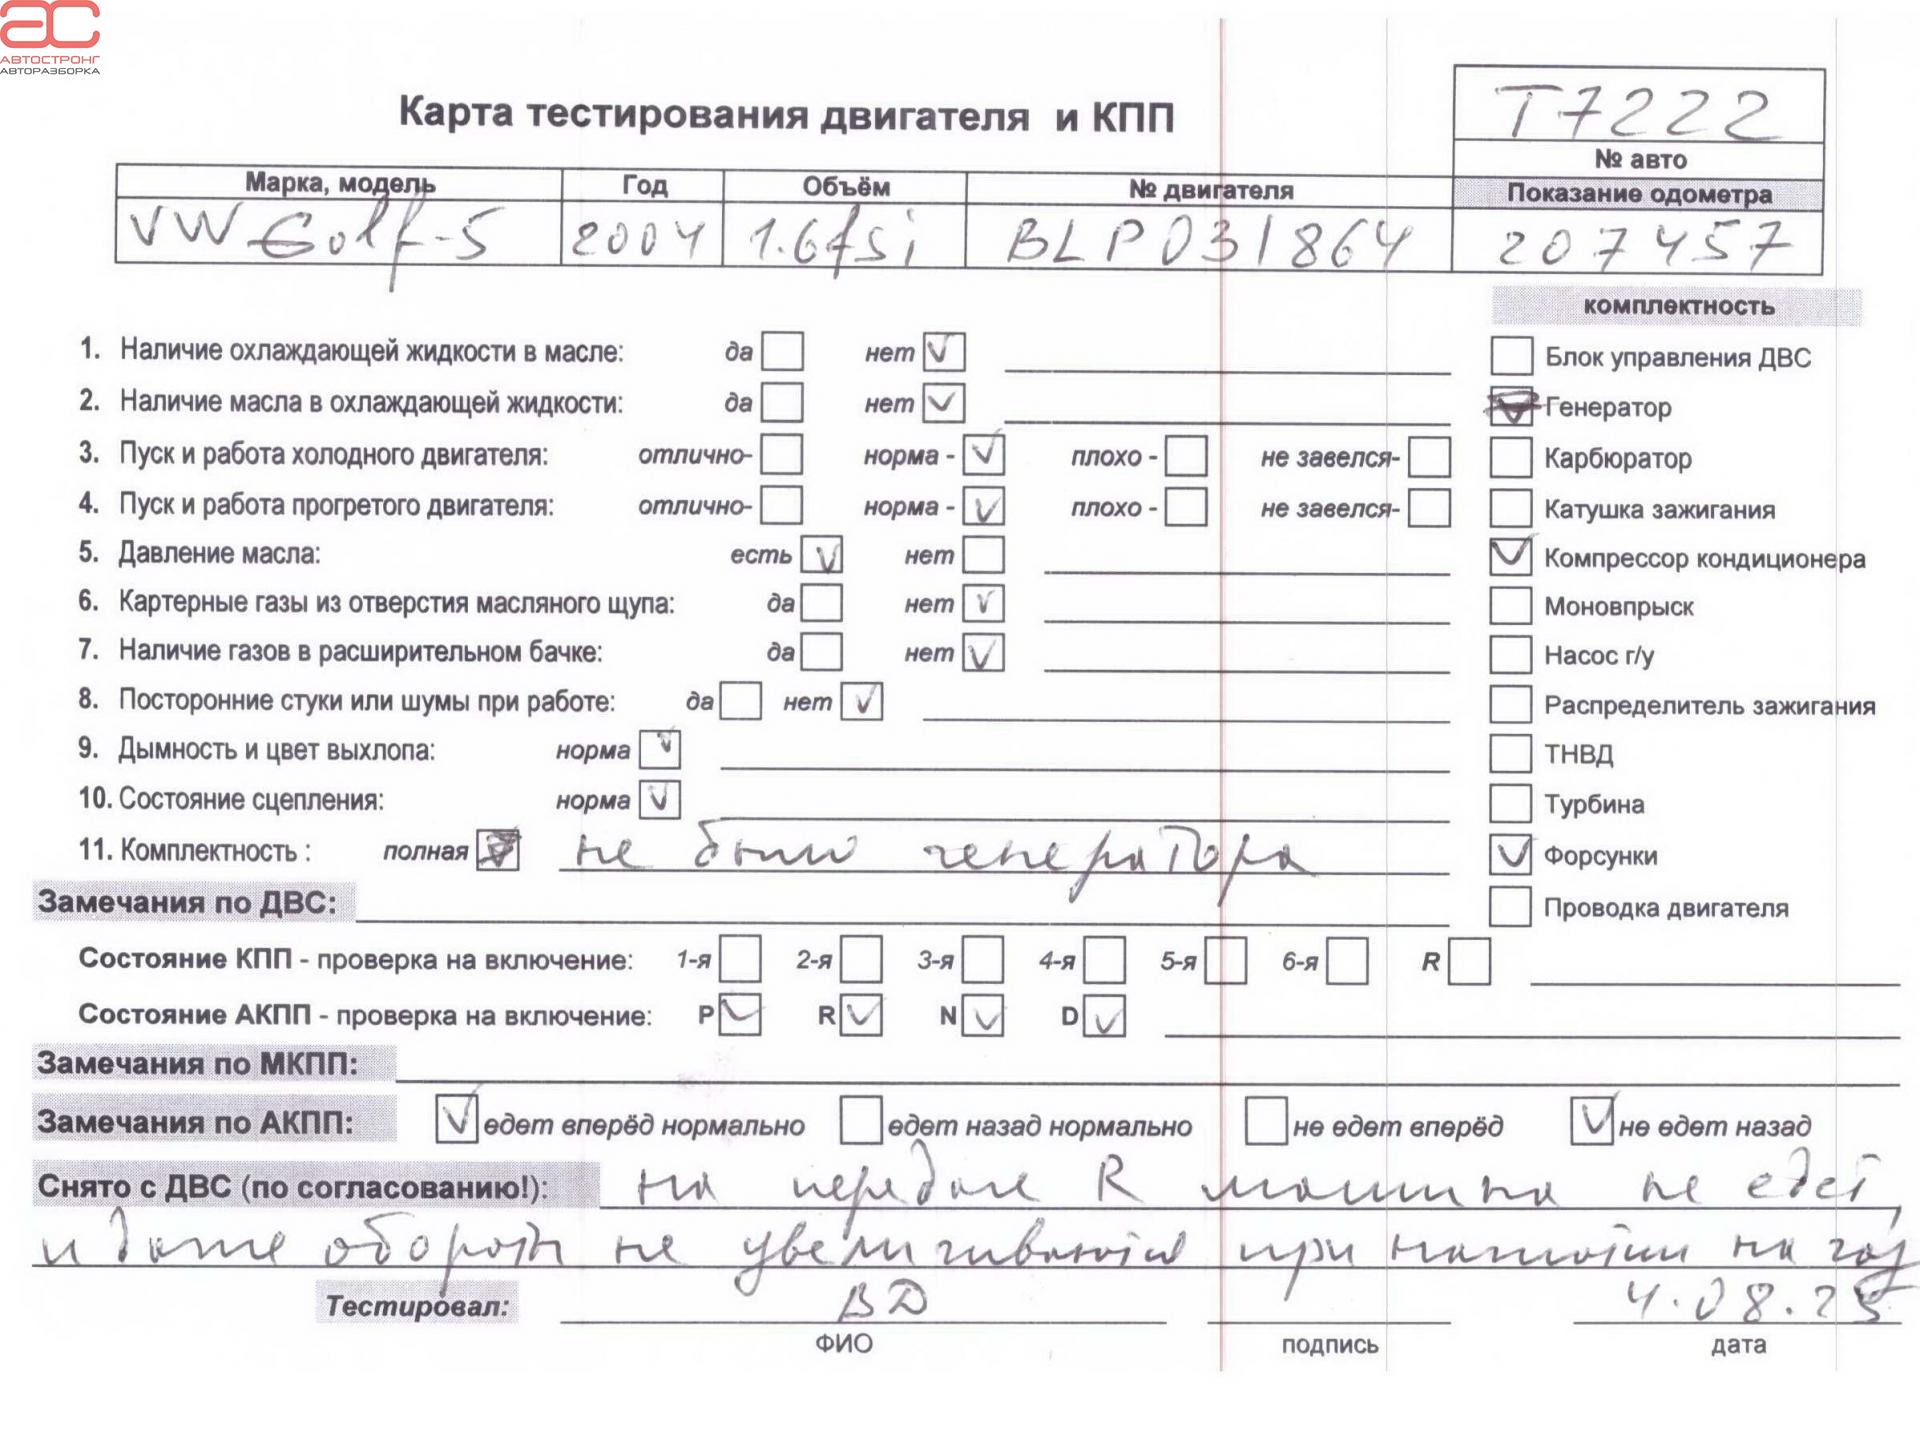 АС
АВТОСТРОНГ
АВТОРАЗБОРКА
Карта тестирования двигателя и КПП
T7222
№ авто
Марка, модель Год Объём № двигателя Показание одометра
VW Golf-5 2004 1.6fsi BLP031864 207457
комплектность
1. Наличие охлаждающей жидкости в масле: да нет
2. Наличие масла в охлаждающей жидкости: да нет
3. Пуск и работа холодного двигателя: отлично- норма - плохо - не завелся-
4. Пуск и работа прогретого двигателя: отлично- норма - плохо - не завелся-
5. Давление масла: есть нет
6. Картерные газы из отверстия масляного щупа: да нет
7. Наличие газов в расширительном бачке: да нет
8. Посторонние стуки или шумы при работе: да нет
9. Дымность и цвет выхлопа: норма
10. Состояние сцепления: норма
11. Комплектность : полная не было генератора
Блок управления ДВС
Генератор
Карбюратор
Катушка зажигания
Компрессор кондиционера
Моновпрыск
Насос г/у
Распределитель зажигания
ТНВД
Турбина
Форсунки
Проводка двигателя
Замечания по ДВС:
Состояние КПП - проверка на включение: 1-я 2-я 3-я 4-я 5-я 6-я R
Состояние АКПП - проверка на включение: P R N D
Замечания по МКПП:
Замечания по АКПП: едет вперёд нормально едет назад нормально не едет вперёд не едет назад
Снято с ДВС (по согласованию!): на передаче R машина не едет,
и даже обороты не увеличиваются при нажатии на газ
Тестировал: ВД 4.08.25
ФИО подпись дата